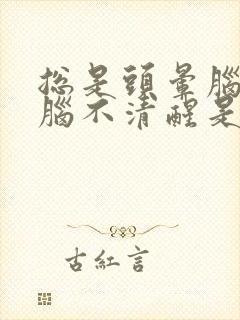 总是頭暈腦
腦不清醒是
古紅言